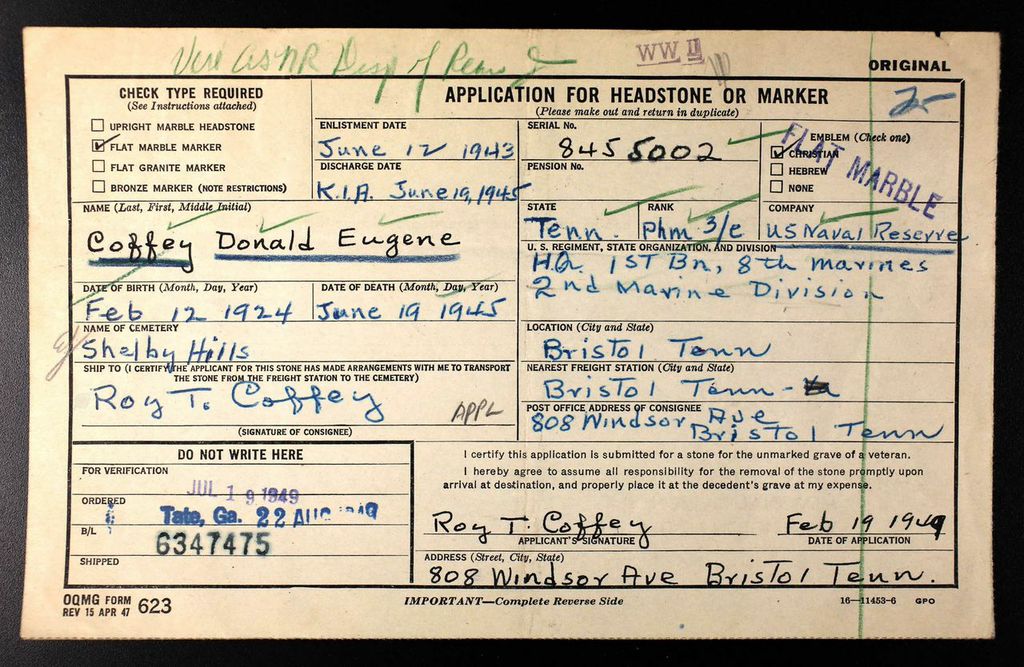 Disp of
WW II
ORIGINAL
CHECK TYPE REQUIRED
(See Instructions attached)
UPRIGHT MARBLE HEADSTONE
FLAT MARBLE MARKER
FLAT GRANITE MARKER
BRONZE MARKER (NOTE RESTRICTIONS)
APPLICATION FOR HEADSTONE OR MARKER
(Please make out and return in duplicate)
25
ENLISTMENT DATE
June 12 1943
DISCHARGE DATE
K.I.A. June 19, 1945
SERIAL No.
845 5002
PENSION No.
EMBLEM (Check one)
CHRISTIAN
HEBREW
NONE
FLAT MARBLE
NAME (Last, First, Middle Initial)
Coffey Donald Eugene
STATE
Tenn.
RANK
Phm 3/c
COMPANY
US Naval Reserve
U. S. REGIMENT, STATE ORGANIZATION, AND DIVISION
H.Q. 1ST Bn, 8th marines
2nd Marine Division
DATE OF BIRTH (Month, Day, Year)
Feb 12 1924
DATE OF DEATH (Month, Day, Year)
June 19 1945
NAME OF CEMETERY
Shelby Hills
LOCATION (City and State)
Bristol Tenn
SHIP TO (I CERTIFY THE APPLICANT FOR THIS STONE HAS MADE ARRANGEMENTS WITH ME TO TRANSPORT
THE STONE FROM THE FREIGHT STATION TO THE CEMETERY)
Roy T. Coffey
APPL
(SIGNATURE OF CONSIGNEE)
NEAREST FREIGHT STATION (City and State)
Bristol Tenn-
POST OFFICE ADDRESS OF CONSIGNEE
808 Windsor Ave
Bristol Tenn
DO NOT WRITE HERE
FOR VERIFICATION
JUL 19 1949
ORDERED
Tate, Ga. 22 AUG 1949
B/L
6347475
SHIPPED
I certify this application is submitted for a stone for the unmarked grave of a veteran.
I hereby agree to assume all responsibility for the removal of the stone promptly upon
arrival at destination, and properly place it at the decedent's grave at my expense.
Roy T. Coffey
APPLICANT'S SIGNATURE
Feb 19 1949
DATE OF APPLICATION
ADDRESS (Street, City, State)
808 Windsor Ave Bristol Tenn.
OQMG FORM
REV 15 APR 47 623
IMPORTANT—Complete Reverse Side
16—11453-6 GPO